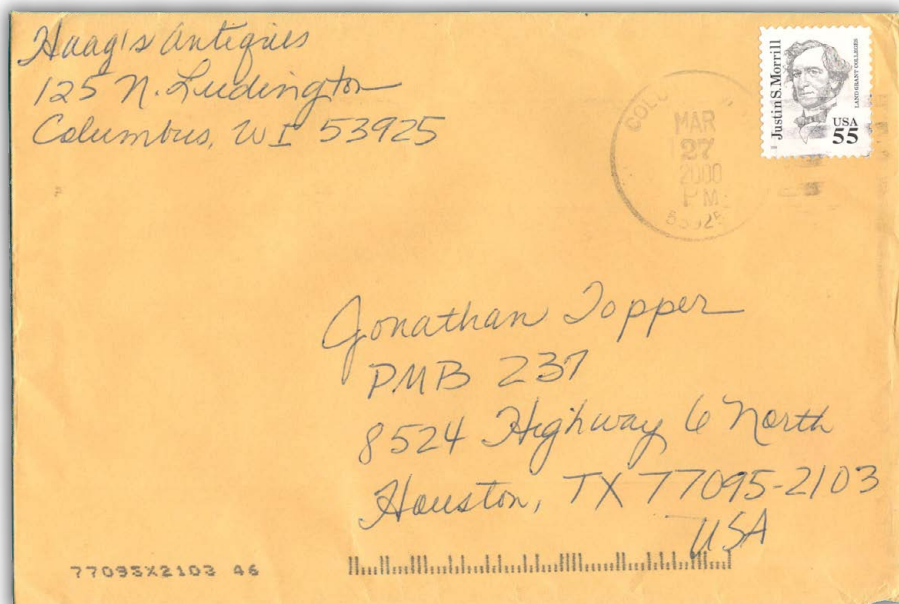 Haag's Antiques
125 N. Ludington
Columbus, WI 53925
Justin S. Morrill
LAND GRANT COLLEGES
USA
55
MAR
27
2000
PM
Jonathan Topper
PMB 237
8524 Highway 6 North
Houston, TX 77095-2103
USA
77095X2103 46